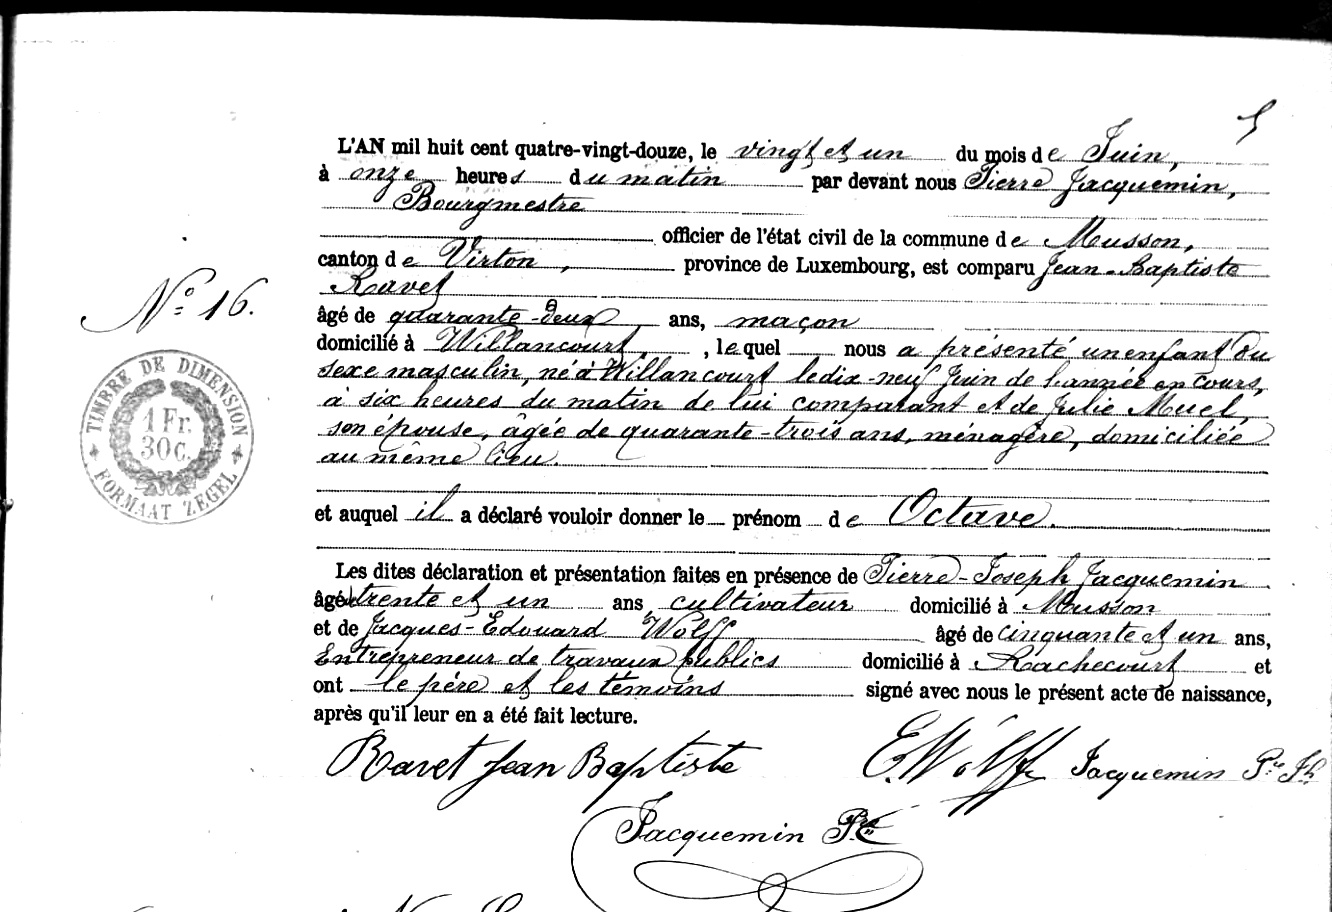 5
L'AN mil huit cent quatre-vingt-douze, le vingt et un du mois de Juin,
à onze heures du matin par devant nous Pierre Jacquemin,
Bourgmestre
officier de l'état civil de la commune de Musson,
canton de Virton, province de Luxembourg, est comparu Jean-Baptiste
Ravet
N° 16.
âgé de quarante-deux ans, maçon
domicilié à Willancourt, , lequel nous a présenté un enfant du
sexe masculin, né à Willancourt le dix-neuf Juin de l'année en cours,
à six heures du matin de lui comparant et de Julie Muel,
son épouse, âgée de quarante-trois ans, ménagère, domiciliée
au même lieu.
TIMBRE DE DIMENSION
1 Fr.
30 c.
FORMAAT ZEGEL
et auquel il a déclaré vouloir donner le prénom de Octave.
Les dites déclaration et présentation faites en présence de Pierre-Joseph Jacquemin
âgé trente et un ans, cultivateur domicilié à Musson
et de Jacques-Edouard Wolff âgé de cinquante et un ans,
Entrepreneur de travaux publics domicilié à Rachecourt et
ont le père et les témoins signé avec nous le présent acte de naissance,
après qu'il leur en a été fait lecture.
Ravet Jean Baptiste E. Wolff Jacquemin Pre Jh
Jacquemin Pre